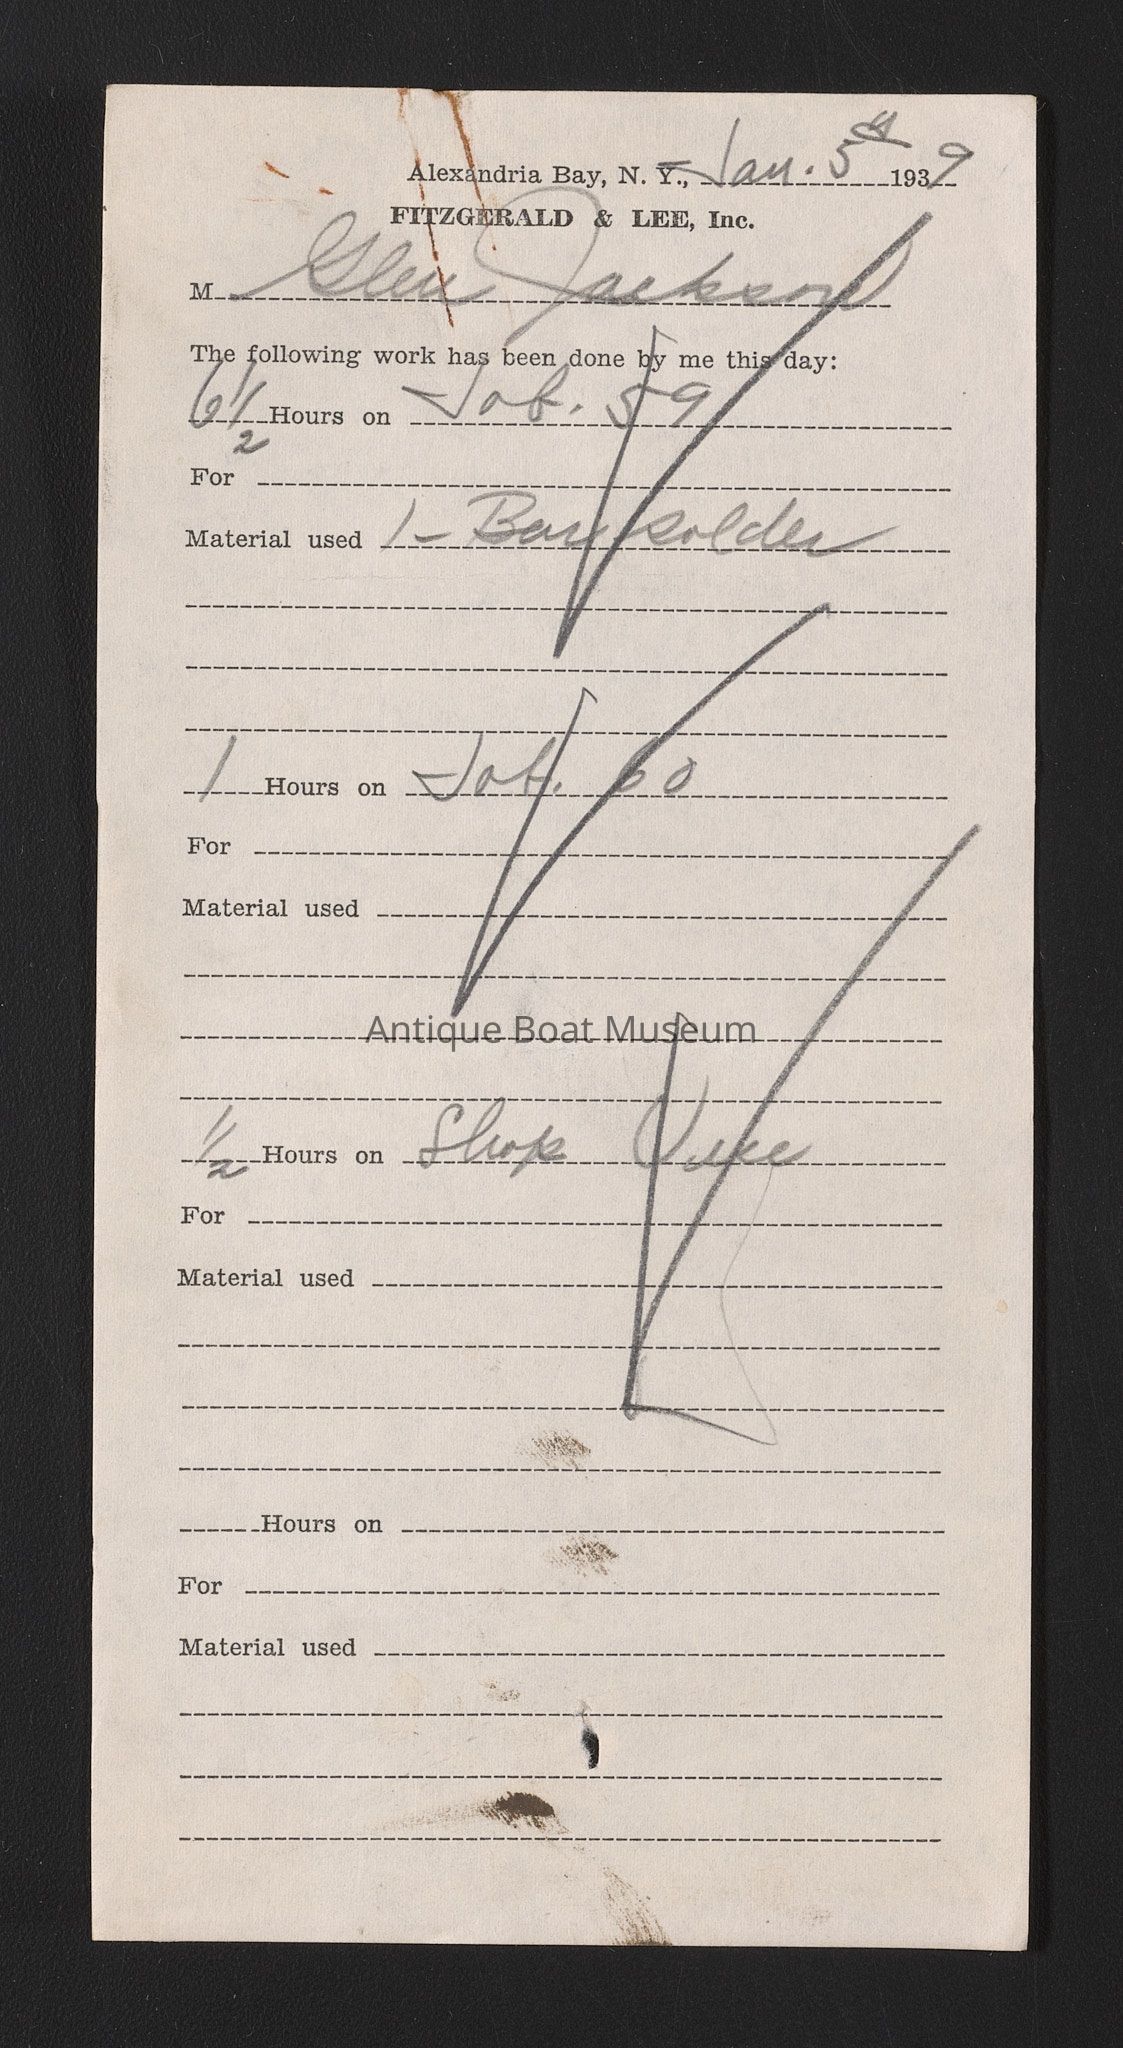 Alexandria Bay, N. Y., Jan. 5th 1939
FITZGERALD & LEE, Inc.
M Glen Jackson
The following work has been done by me this day:
6 1/2 Hours on Job. 59
For
Material used 1 - Bar solder
1 Hours on Job. 60
For
Material used
Antique Boat Museum
1/2 Hours on Shop
For
Material used
Hours on
For
Material used